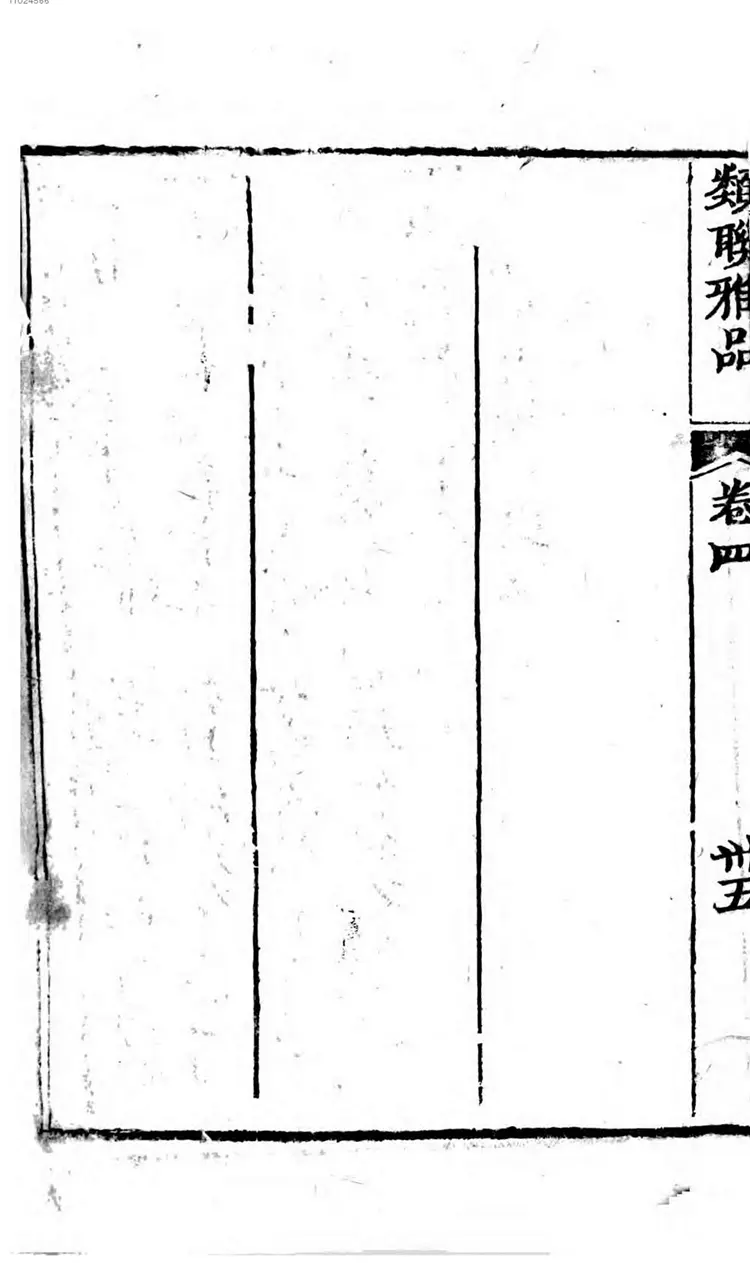 類聯雅品
卷四
卅五